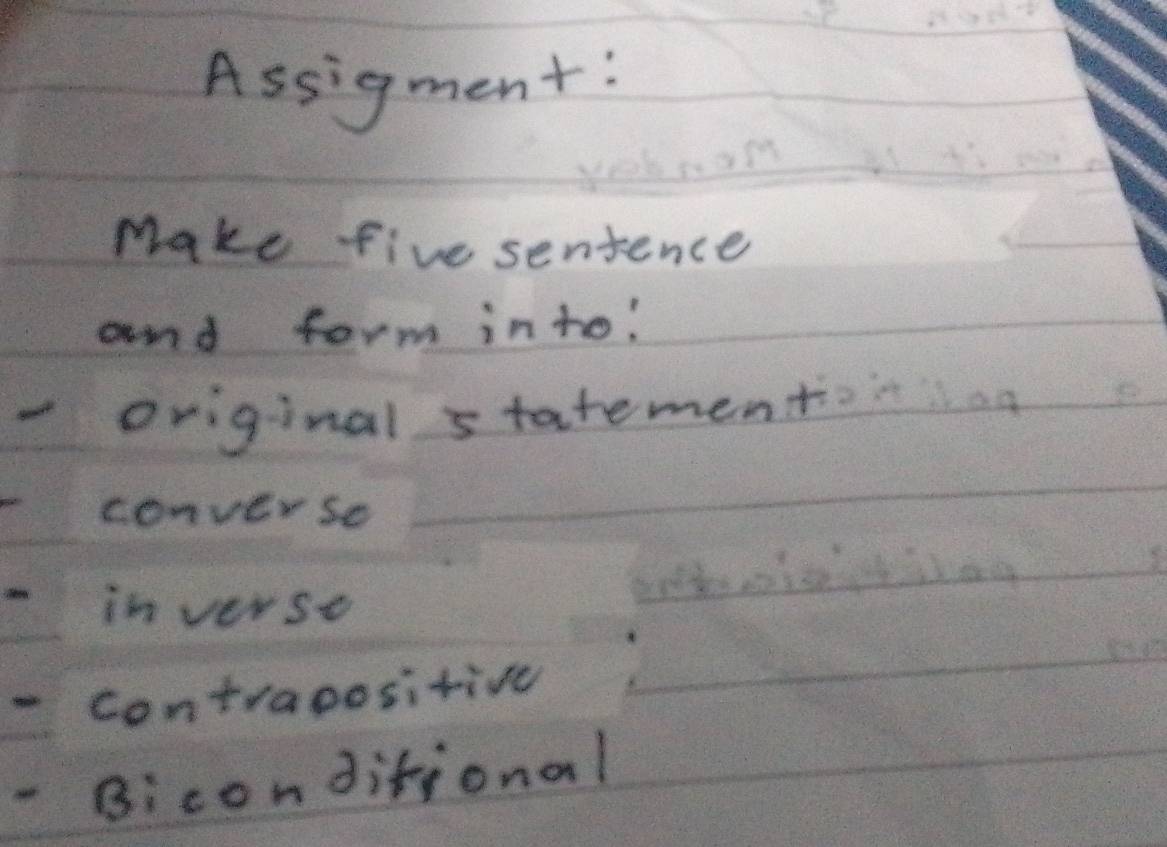 Assigment:
Make five sentence
and form into:
- original statement
- converse
- inverse
- contrapositive
- Biconditional